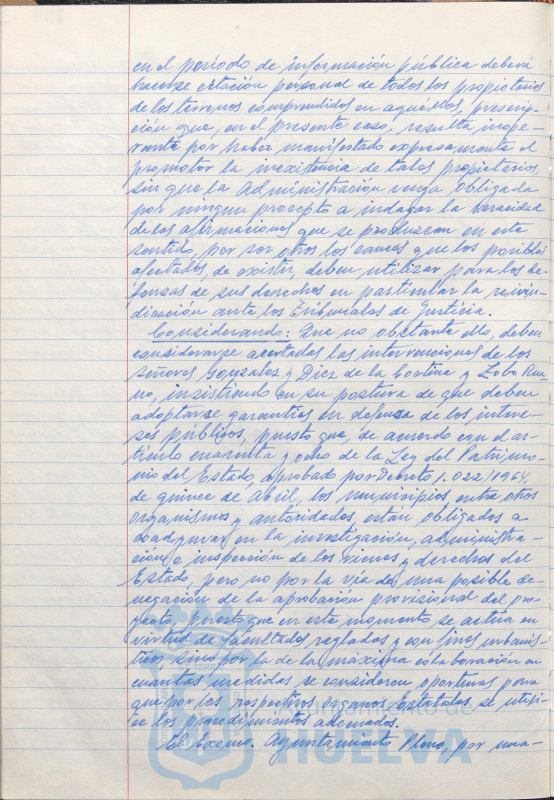 en el período de información pública deberá
hacerse citación personal de todos los propietarios
de los terrenos comprendidos en aquéllos, prescrip-
ción que, en el presente caso, resulta inope-
rante por haber manifestado expresamente el
promotor la inexistencia de tales propietarios,
sin que la Administración venga obligada
por ningun precepto a indagar la veracidad
de las afirmaciones que se produzcan en este
sentido, por ser otros los cauces que los posibles
afectados, de existir, deben utilizar para la de-
fensa de sus derechos en particular la reivin-
dicación ante los Tribunales de Justicia.
Considerando: Que no obstante ello, deben
considerarse acertadas las intervenciones de los
señores Gonzalez y Diez de la Cortina y Lobo Rua-
no, insistiendo en su postura de que deben
adoptarse garantías en defensa de los intere-
ses públicos, puesto que, de acuerdo con el ar-
tículo cuarenta y ocho de la Ley del Patrimo-
nio del Estado, aprobado por Decreto 1.022/1964,
de quince de Abril, los municipios, entre otros
organismos y autoridades, están obligados a
coadyuvar en la investigación, administra-
ción e inspección de los bienes y derechos del
Estado, pero no por la vía de una posible de-
negación de la aprobación provisional del pro-
yecto, puesto que en este momento se actua en
virtud de facultades regladas y con fines urbanís-
ticos, sino por la de la máxima colaboración en
cuantas medidas se consideren oportunas para
que por los respectivos órganos Estatales, se utili-
ce los procedimientos adecuados.
El Excmo. Ayuntamiento Pleno, por una-
Ayuntamiento de
HUELVA